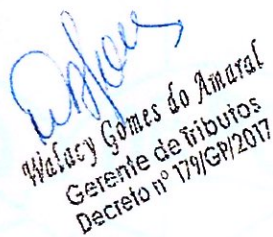 Walacy Gomes do Amaral
Gerente de Tributos
Decreto nº 179/GP/2017